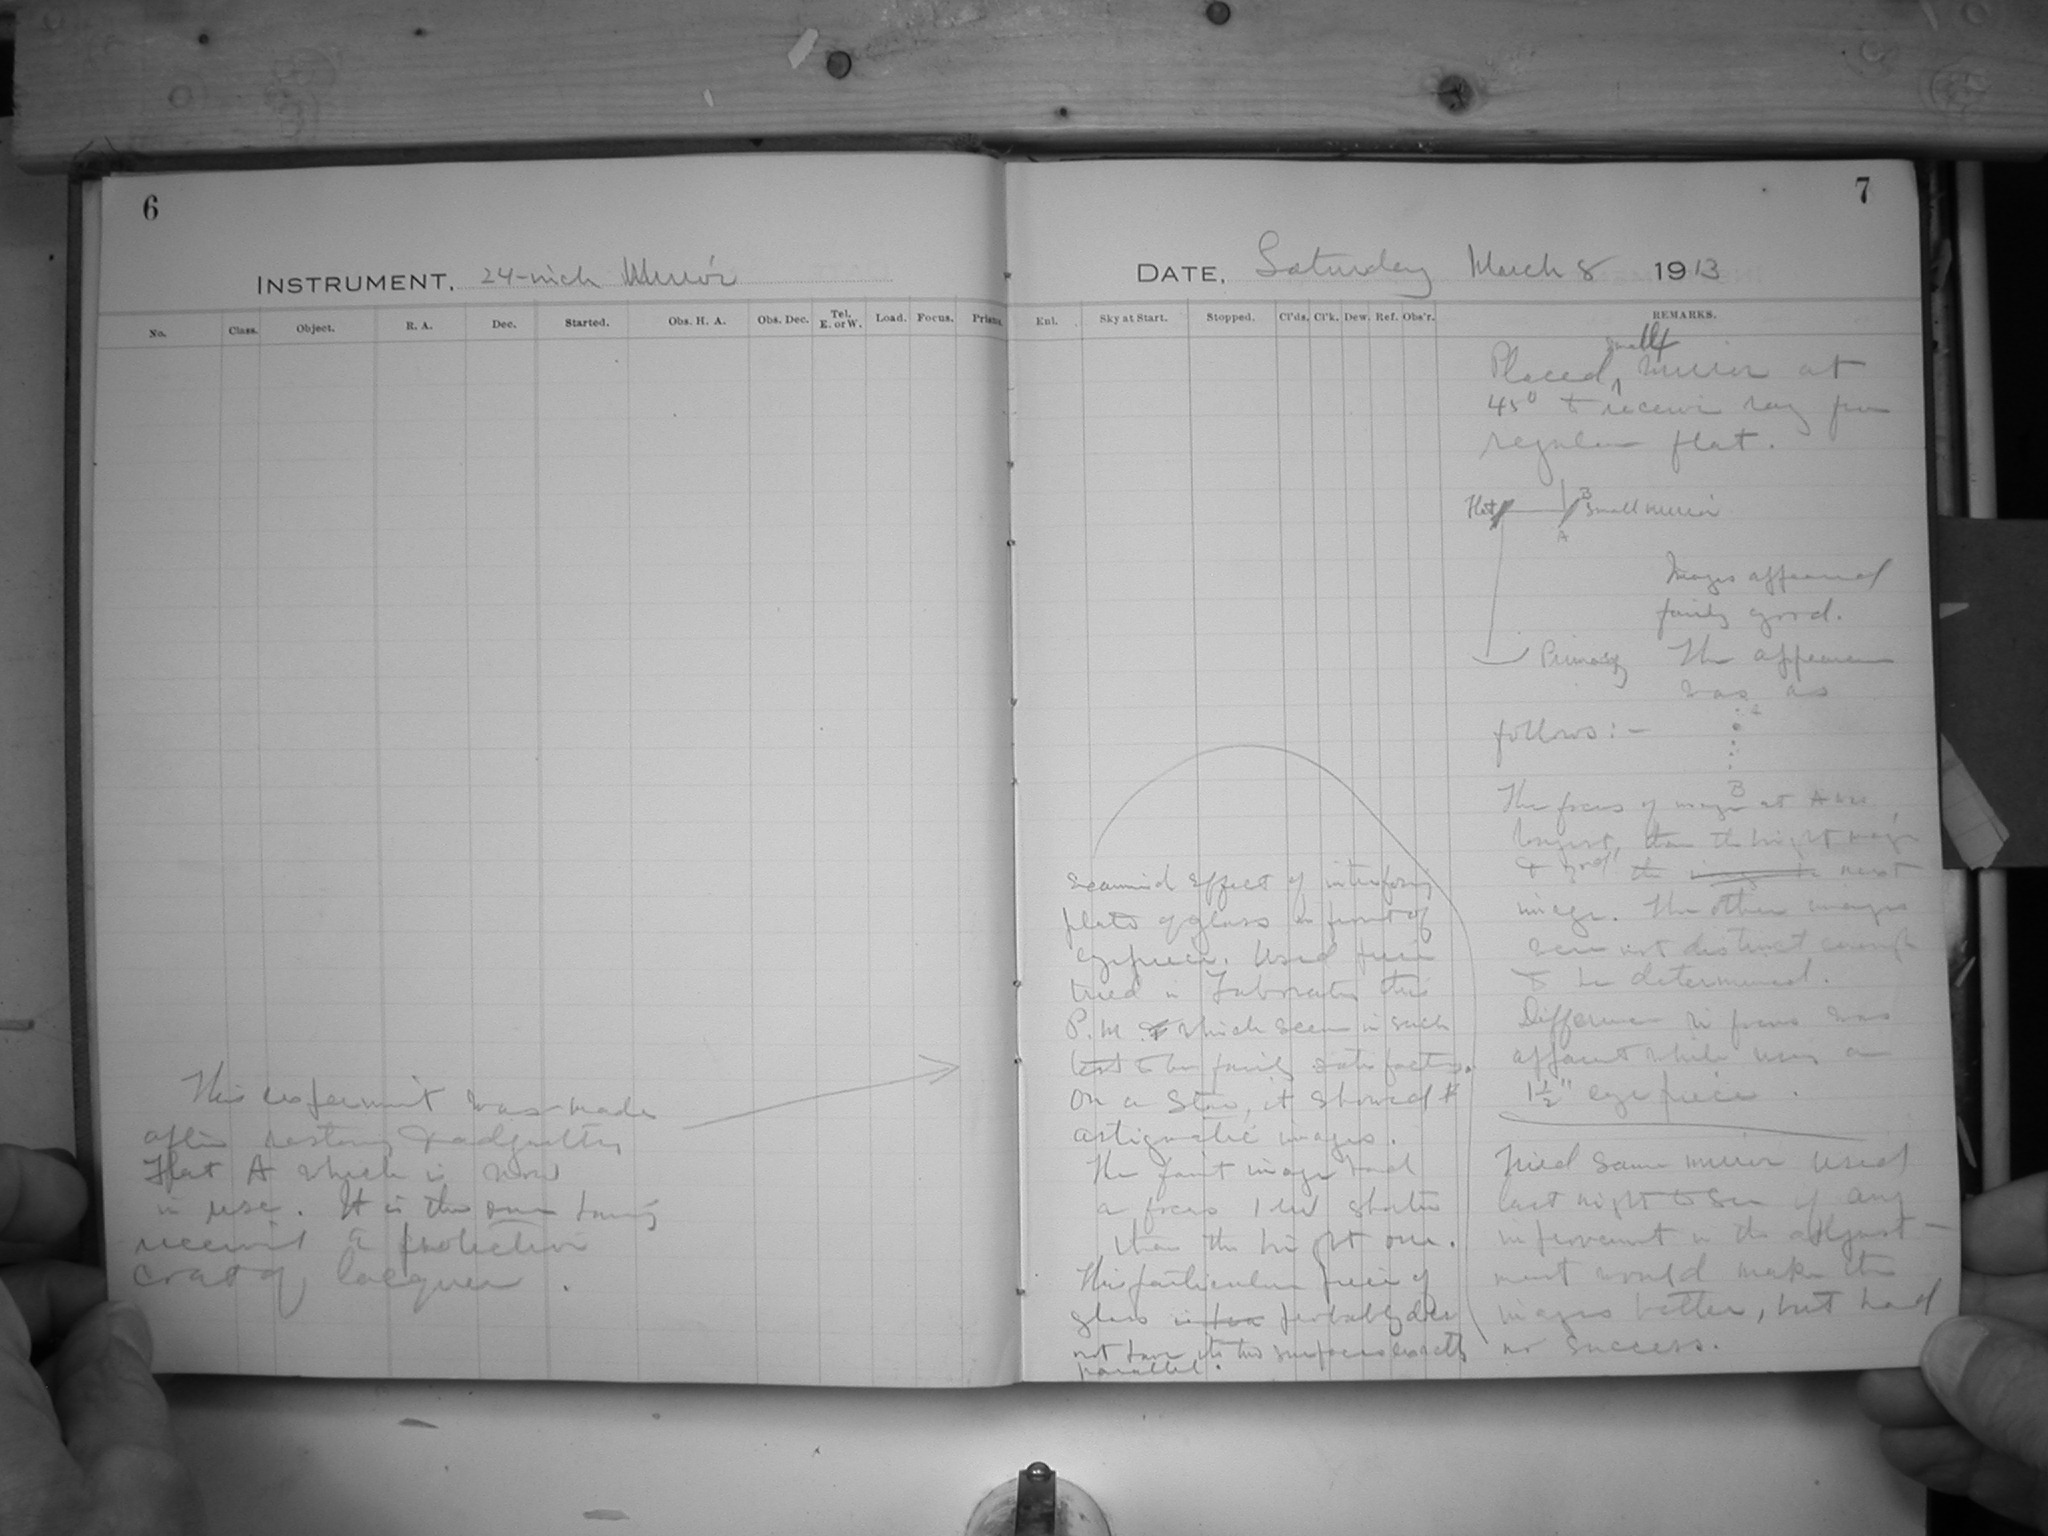 6
INSTRUMENT, 24-inch Mirror
No. Class. Object. R. A. Dec. Started. Obs. H. A. Obs. Dec. Tel. E. or W. Load. Focus. Prisms.
This experiment was made
after restoring & adjusting
Flat A which is now
in use. It is the one having
received a protective
coat of lacquer.
7
DATE, Saturday March 8 1913
Enl. Sky at Start. Stopped. Cl'ds. Cl'k. Dew. Ref. Obs'r. REMARKS.
Placed small mirror at
45° to receive ray from
regular flat.
Flat B Small mirror
A
Images appeared
fairly good.
Primary The appearance
was as
follows:-
B
The focus of image at A was
longest, than the bright image
& the next
image. The other images
were not distinct enough
to be determined.
Difference in focus was
apparent while using an
1½" eyepiece.
Tried same mirror used
last night to see if any
improvement in the adjust-
ment would make the
images better, but had
no success.
Examined effect of interposing
plate of glass in front of
eyepiece. Used piece
tried in Laboratory this
P.M. which seem in such
test to be fairly satisfactory.
On a star, it showed
astigmatic images.
The faint image had
a focus shorter
than the bright one.
This particular piece of
glass probably does
not have its two surfaces exactly
parallel.